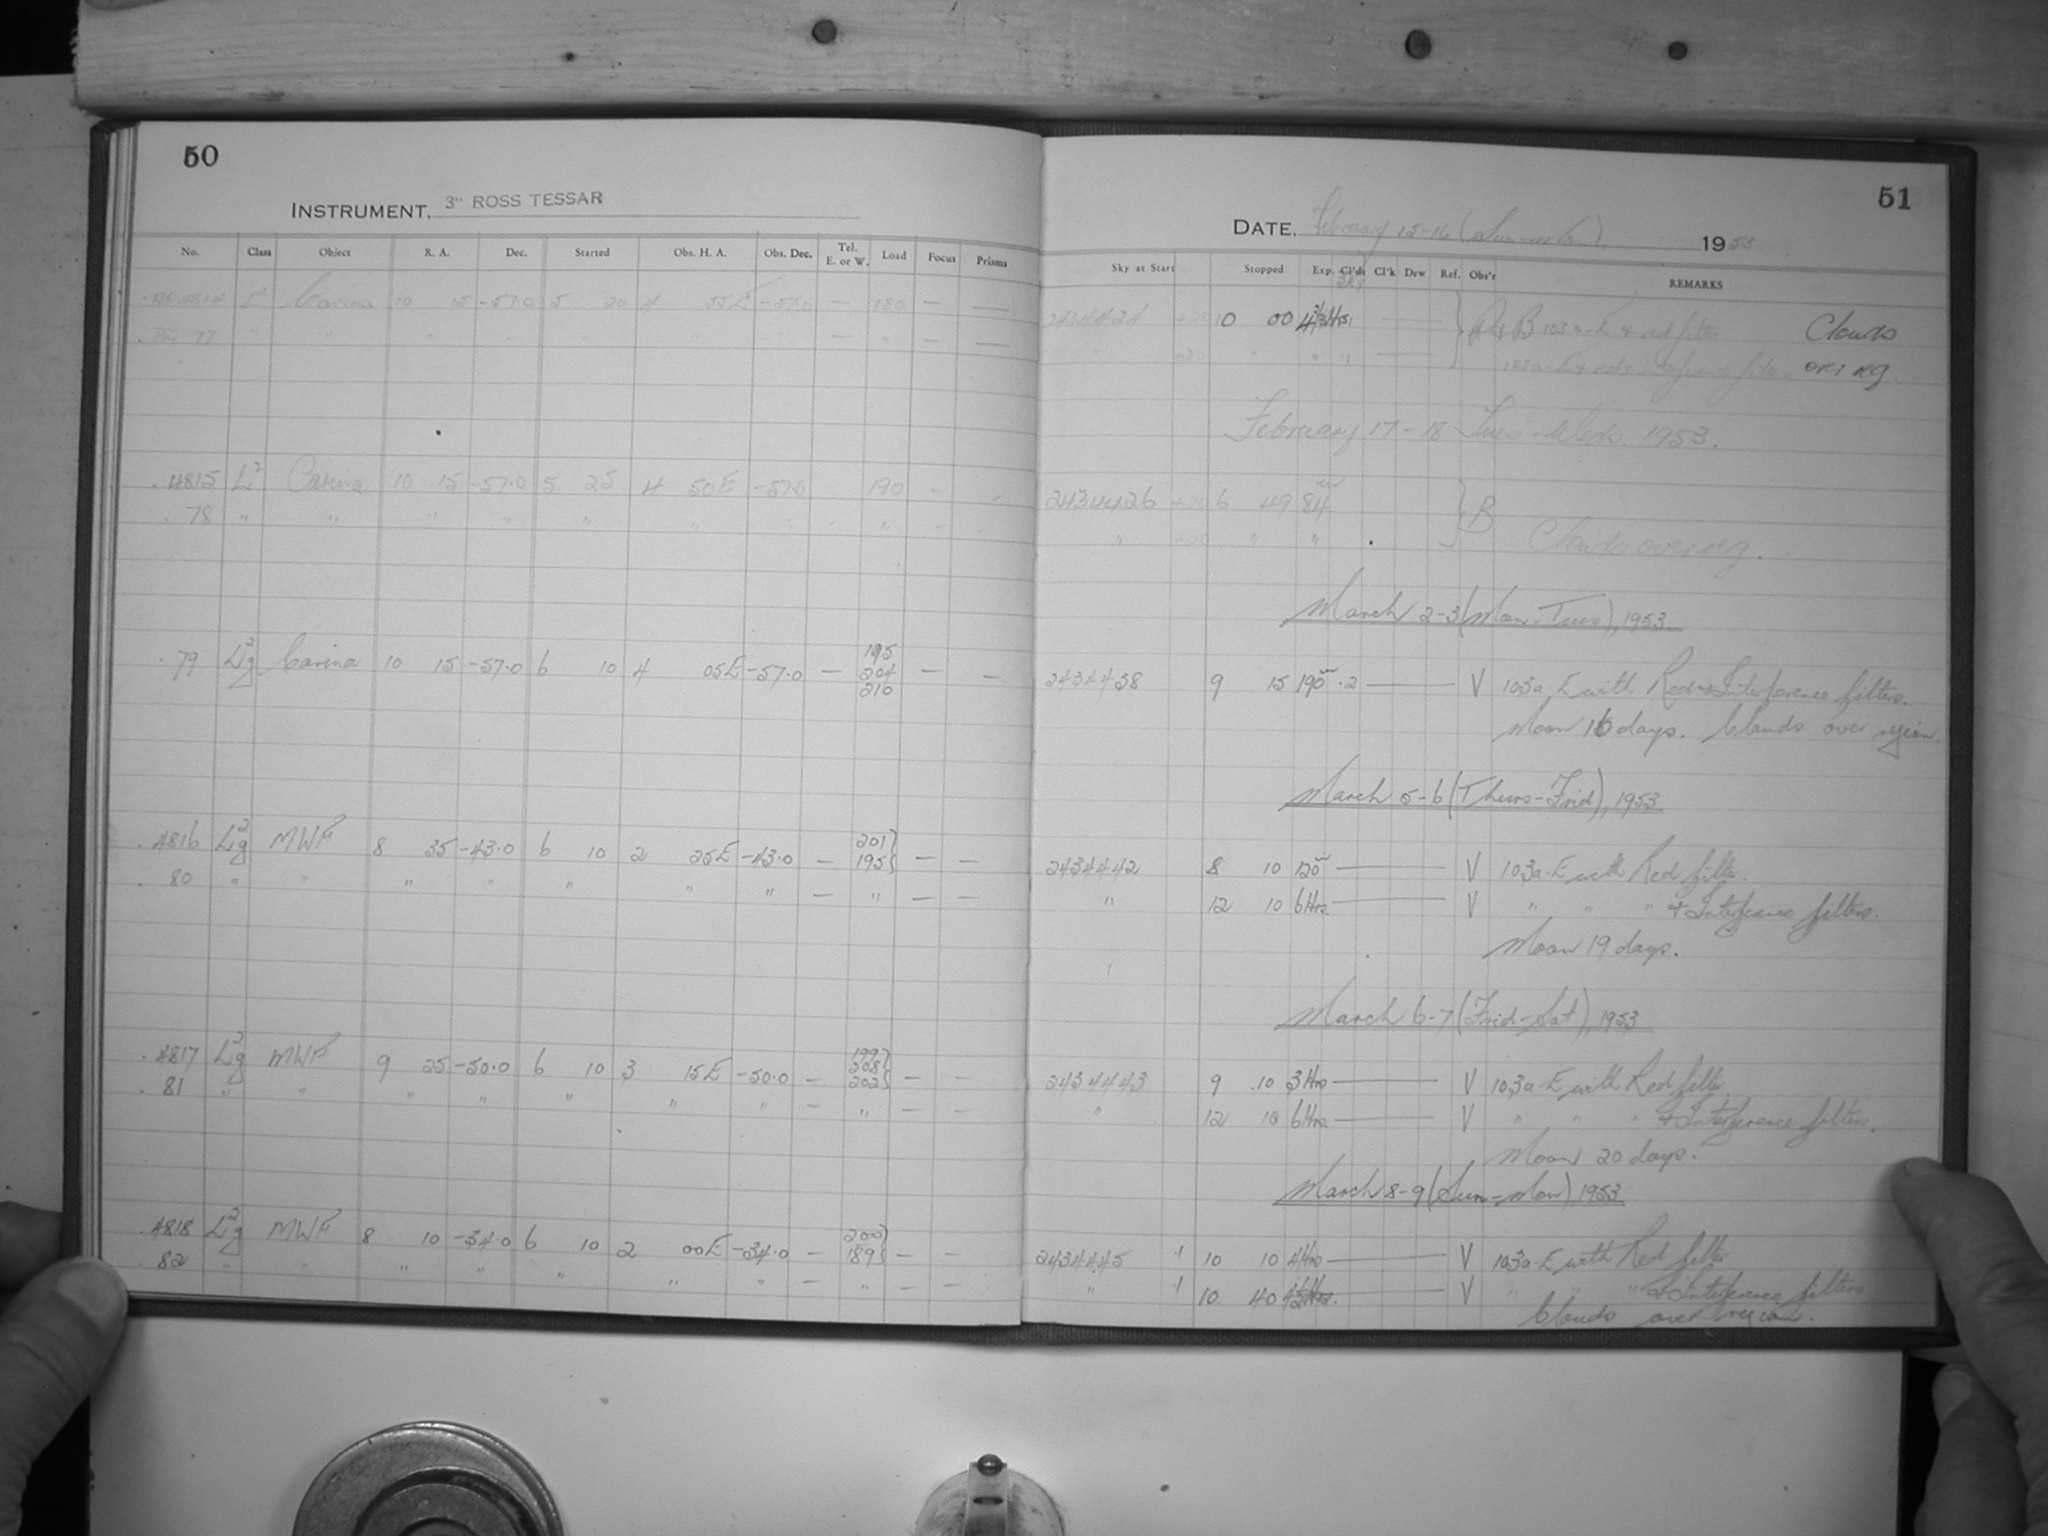 50
INSTRUMENT, 3" ROSS TESSAR
No. Class Object R. A. Dec. Started Obs. H. A. Obs. Dec. Tel. E. or W. Load Focus Prisms
Carina 10 15 -57.0 5 20 4 55E -57.0 — 180 — —
77 " " " " " " " — " — —
4815 L² Carina 10 15 -57.0 5 25 4 50E -57.0 190 - -
78 " " " " " " " " " - -
79 L²g Carina 10 15 -57.0 6 10 4 05E -57.0 — 195 204 210 — —
4816 L²g MWF 8 35 -43.0 6 10 2 25E -43.0 — 201 195 — —
80 " " " " " " " — " — —
4817 L²g MWF 9 25 -50.0 6 10 3 15E -50.0 — 199 208 202 — —
81 " " " " " " " — " — —
4818 L²g MWF 8 10 -34.0 6 10 2 00E -34.0 — 200 189 — —
82 " " " " " " " — " — —
51
DATE, February 15-16 (Sun-Mon), 1953
Sky at Start Stopped Exp. Cl'ds Cl'k Dew Ref. Obs'r REMARKS
Sky
2434424 10 00 Hrs. B 103a-E + red filter Clouds
" +20 " " 103a-E + red + interference filter over reg.
February 17-18 Tues-Weds. 1953.
2434426 +20 6 49 84ᵐ B
" +20 " " Clouds over reg.
March 2-3 (Mon-Tues), 1953.
2434438 9 15 190ᵐ .2 — V 103a-E with Red + Interference filters.
Moon 16 days. Clouds over region.
March 5-6 (Thurs-Frid), 1953
2434442 8 10 120ᵐ — V 103a-E with Red filter.
" 12 10 6Hrs. — V " " " + Interference filters.
Moon 19 days.
March 6-7 (Frid-Sat), 1953
2434443 9 10 3Hrs — V 103a-E with Red filter
" 12 10 6Hrs — V " " " + Interference filters.
Moon 20 days.
March 8-9 (Sun-Mon), 1953
2434445 10 10 4Hrs — V 103a-E with Red filter
" 10 40 4½Hrs. — V " " " + Interference filters
Clouds over region.